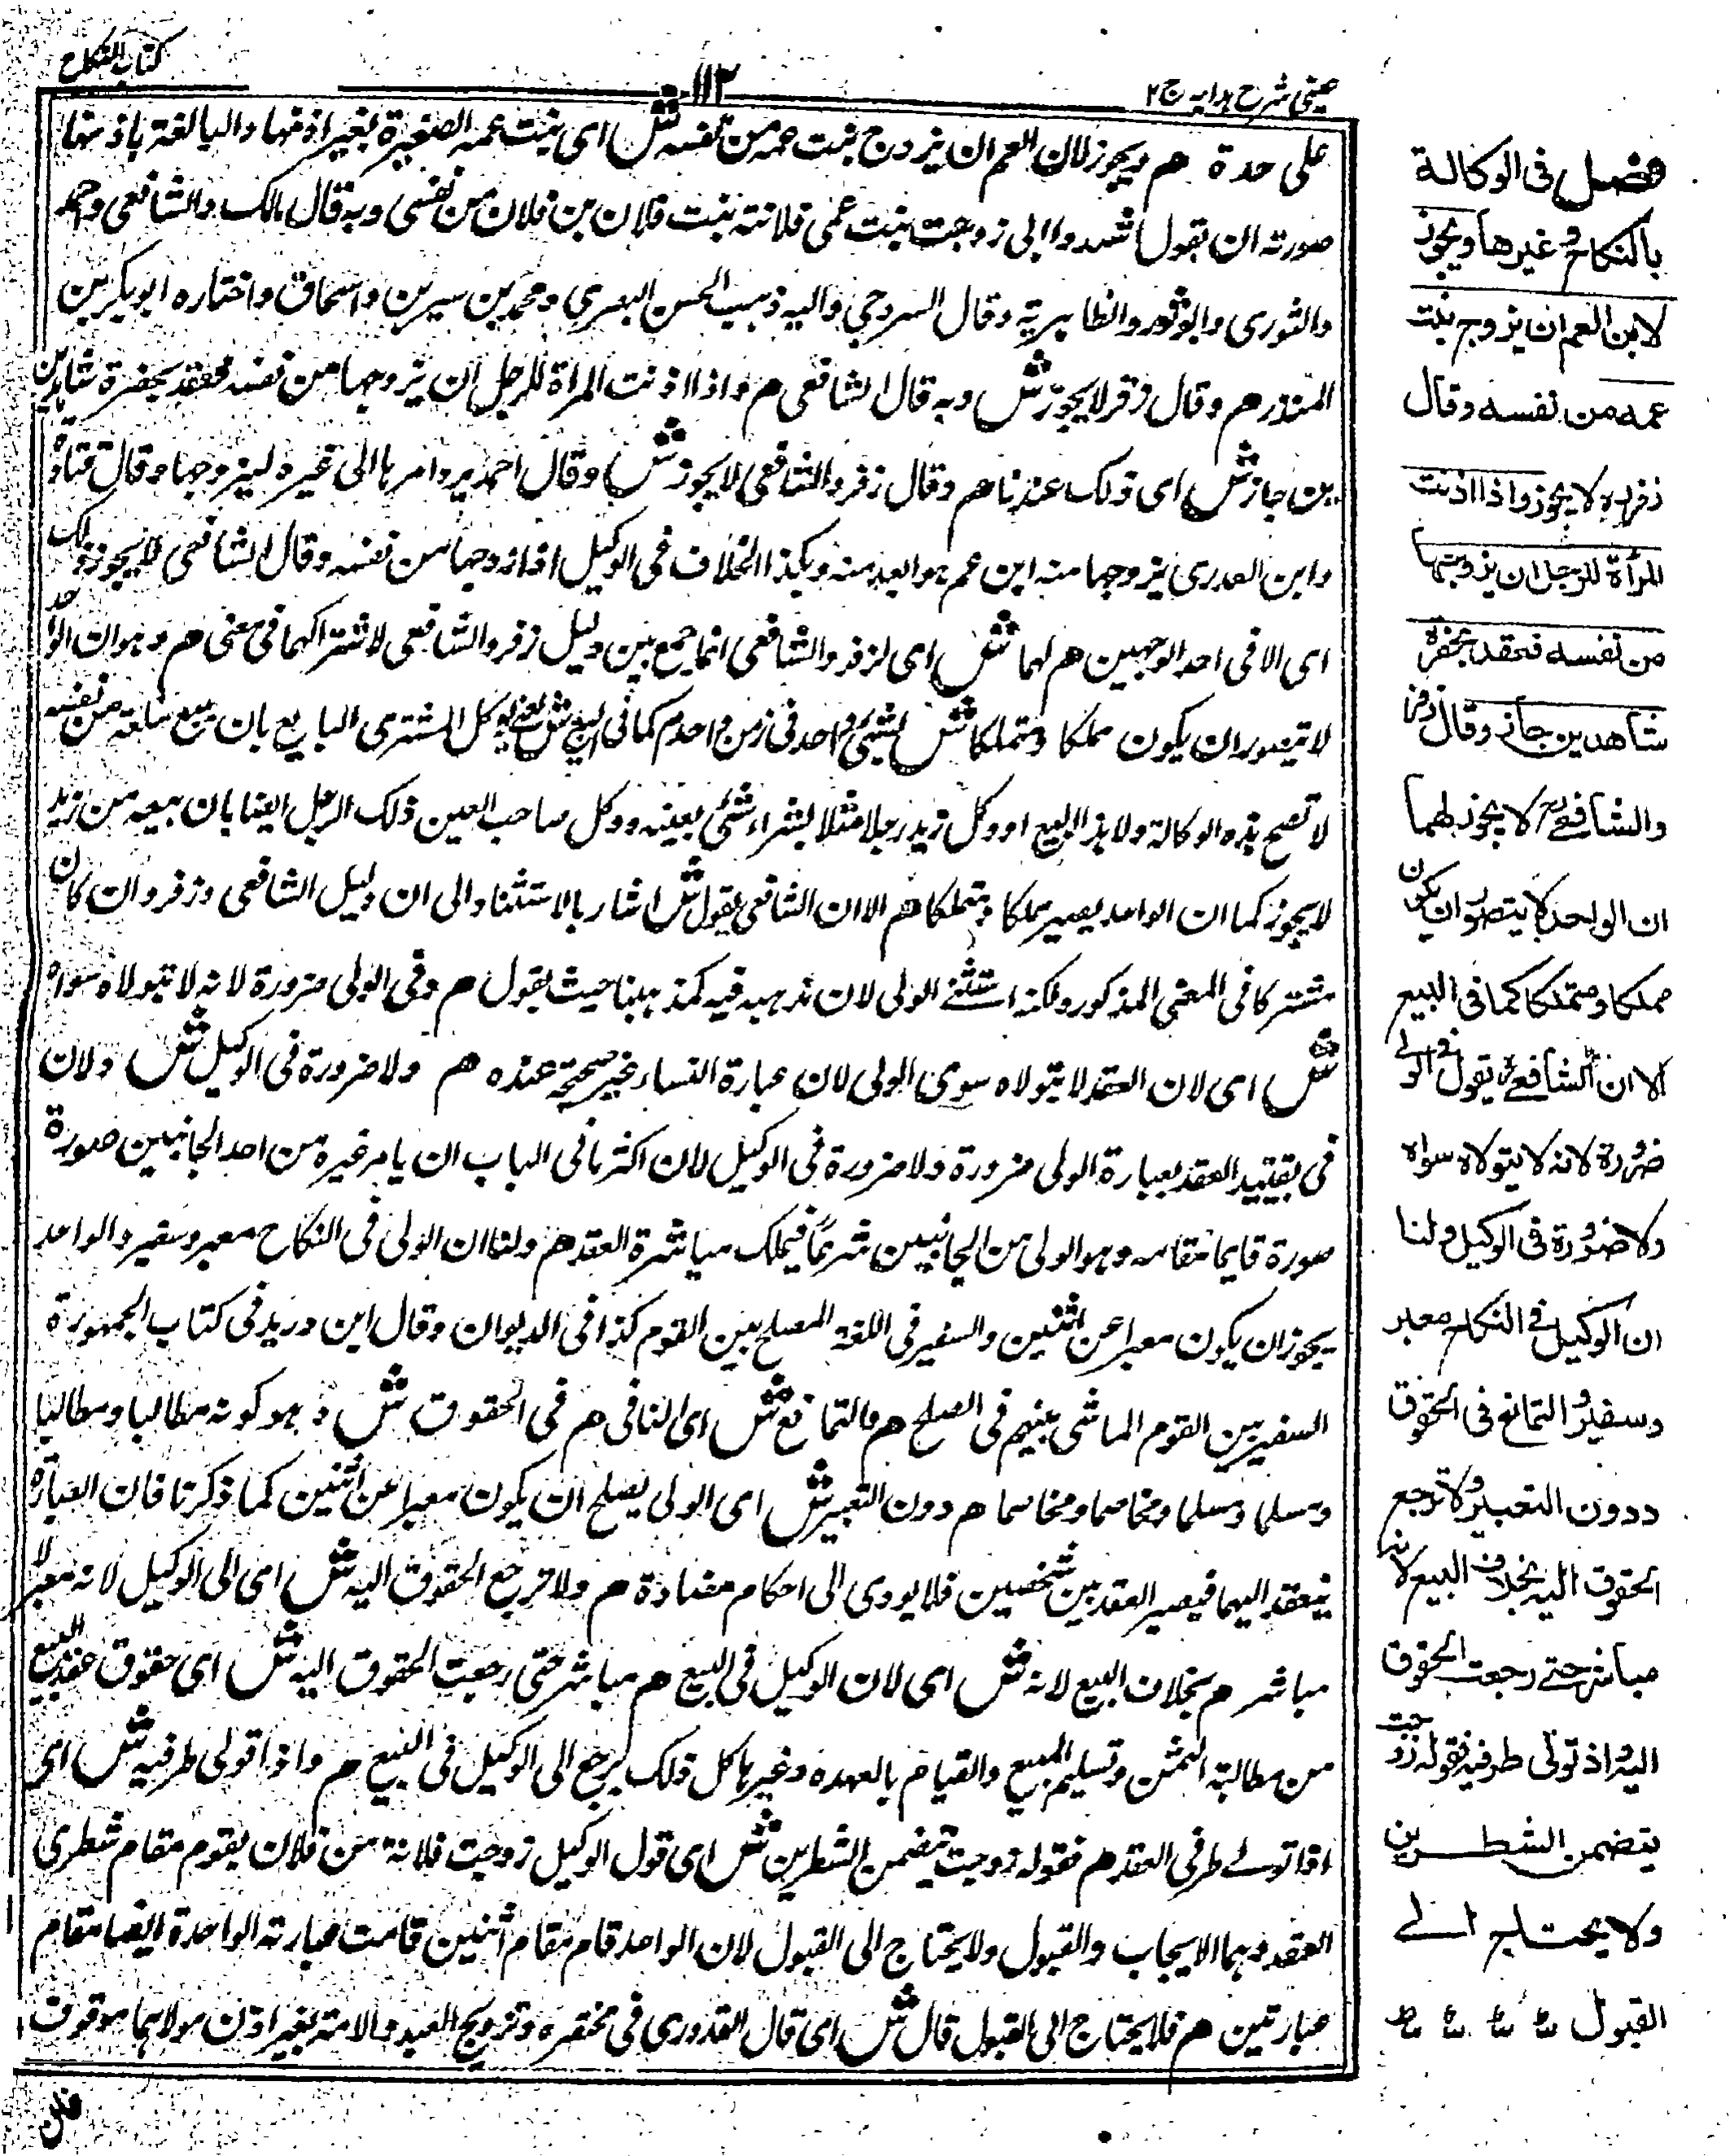 عینی شرح ہدایہ ج ٢
١١٢
کتاب النکاح
علی حدة هم ویجوز لابن العم ان یزوج بنت عمه من نفسه ش ای بنت عمه الصغیرة بغیر اذنها والبالغة باذنها
صورته ان یقول اشهدوا انی زوجت بنت عمی فلانة بنت فلان بن فلان من نفسی وبه قال مالک والشافعی واحمد
والثوری وابوثور والظاہریة وقال السروجی والیه ذہب الحسن البصری ومحمد بن سیرین واسحاق واختاره ابوبکر بن
المنذر هم وقال زفر لا یجوز ش وبه قال الشافعی هم واذا اذنت المرأة للرجل ان یزوجها من نفسه فعقد بحضرة شاہدین
بن جاز ش ای ذلک عندنا هم وقال زفر والشافعی لا یجوز ش وقال احمد یرد امرہا الی غیره لیزوجها وقال قتادة
وابن العدری یزوجها منه ابن عم ہو ابعد منه وہکذا الخلاف فی الوکیل اذا زوجها من نفسه وقال الشافعی لا یجوز ذلک
ای الا فی احد الوجہین هم لہما ش ای لزفر والشافعی انما جمع بین دلیل زفر والشافعی لاشتراکہما فی معنی هم وہو ان الواحد
لا یتصور ان یکون مملکا ومتملکا ش لشئی واحد فی زمن واحد هم کما فی البیع ش لو وکل المشتری البایع بان یبیع سلعة من نفسه
لا تصح ہذه الوکالة ولا ہذا البیع او وکل زید رجلا مثلا بشراء شئی بعینه ووکل صاحب العین ذلک الرجل ایضا بان یبیعه من زید
لا یجوز کما ان الواحد یصیر مملکا ومتملکا هم الا ان الشافعی یقول ش اشار بالاستثناء الی ان دلیل الشافعی وزفر وان کان
مشترکا فی المعنی المذکور ولکنه استثنی الولی لان مذہبه فیه کمذہبنا حیث یقول هم وفی الولی ضرورة لانه لا یتولاه سواه
ش ای لان العقد لا یتولاه سوی الولی لان عبارة النساء غیر صحیحة عنده هم ولا ضرورة فی الوکیل ش ولان
فی تقیید العقد بعبارة الولی ضرورة ولا ضرورة فی الوکیل لان اکثر ما فی الباب ان یامر غیره من احد الجانبین صورة
صورة قایما مقامه وہو الولی من الجانبین شرعا فیملک مباشرة العقد هم ولنا ان الولی فی النکاح معبر وسفیر والواحد
یجوز ان یکون معبرا عن اثنین والسفیر فی اللغة المصلح بین القوم کذا فی الدیوان وقال ابن درید فی کتاب الجمہورة
السفیر بین القوم الماشی بینهم فی الصلح هم والتمانع ش ای التنافی هم فی الحقوق ش وہو کونه مطالبا ومطالبا
ومسلما ومسلما ومخاصما ومخاصما هم دون التعبیر ش ای الولی یصلح ان یکون معبرا عن اثنین کما ذکرنا فان العبارة
ینعقد الیهما فیصیر العقد بین شخصین فلا یودی الی احکام مضادة هم ولا ترجع الحقوق الیه ش ای الی الوکیل لانه معبر لا
مباشر هم بخلاف البیع لانه ش ای لان الوکیل فی البیع هم مباشر حتی رجعت الحقوق الیه ش ای حقوق عقد البیع
من مطالبة الثمن وتسلیم المبیع والقیام بالعهدة وغیرہا کل ذلک یرجع الی الوکیل فی البیع هم واذا تولی طرفیه ش ای
اذا تولی طرفی العقد هم فقوله زوجت یتضمن الشطرین ش ای قول الوکیل زوجت فلانة من فلان یقوم مقام شطری
العقد وہما الایجاب والقبول ولا یحتاج الی القبول لان الواحد قام مقام اثنین قامت عبارته الواحدة ایضا مقام
عبارتین هم فلا یحتاج الی القبول قال ش ای قال القدوری فی مختصره وتزویج العبد والامة بغیر اذن مولاہما موقوف
فان
فصل فی الوکالة
بالنکاح وغیرها ویجوز
لابن العم ان یزوج بنت
عمه من نفسه وقال
زفر لا یجوز واذا اذنت
المرأة للرجل ان یزوجها
من نفسه فعقد بحضرة
شاهدین جاز وقال زفر
والشافعی لا یجوز لهما
ان الواحد لا یتصور ان یکون
مملکا ومتملکا کما فی البیع
الا ان الشافعی یقول فی الولی
ضرورة لانه لا یتولاه سواه
ولا ضرورة فی الوکیل ولنا
ان الوکیل فی النکاح معبر
وسفیر والتمانع فی الحقوق
دون التعبیر ولا ترجع
الحقوق الیه بخلاف البیع لانه
مباشر حتی رجعت الحقوق
الیه واذ تولی طرفیه فقوله زوجت
یتضمن الشطرین
ولا یحتاج الی
القبول